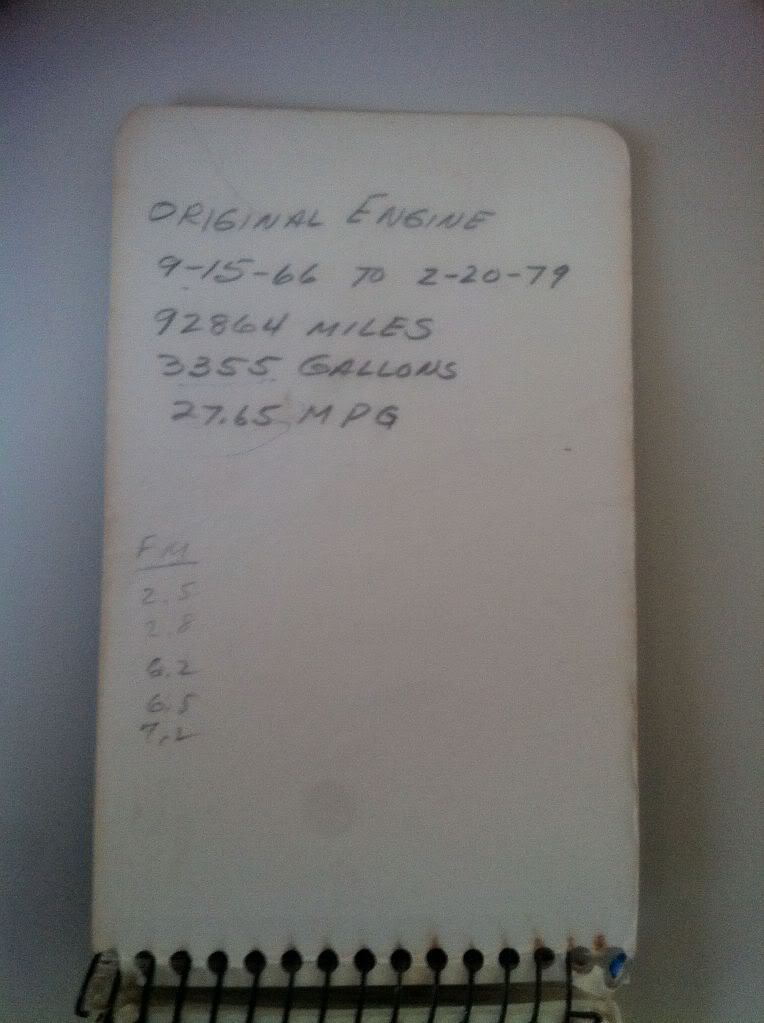 ORIGINAL ENGINE
9-15-66 TO 2-20-79
92864 MILES
3355 GALLONS
27.65 MPG
FM
2.5
2.8
6.2
6.5
7.2